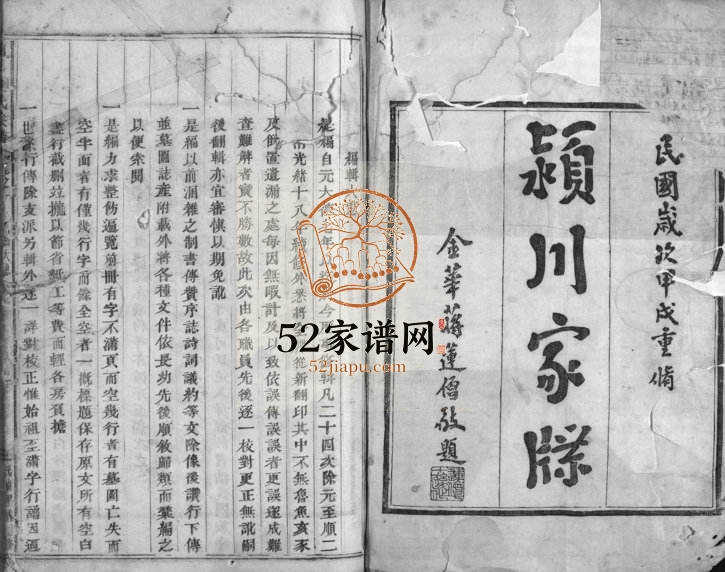 民國歲次甲戌重脩
潁川家牒
金華蔣蓮僧敬題
52家谱网
52jiapu.com
編輯
是編自元大 今 輯凡二十四次除元至順二
光緒十八年 外悉 從新翻印其中不無魯魚亥豕
及倒置遺漏之處每因無暇計及以致依誤傳誤誤者更誤遂成難
查難解者實不勝數故此次由各職員先後逐一校對更正無訛嗣
後翻輯亦宜審慎以期免訛
一是編以前溷雜之制書傳贊序誌詩詞議約等文除像後讚行下傳
並墓圖誌產附載外將各種文件依長幼先後順敘歸類而彙編之
以便條閱
一是編力求整飭逼覽前冊有字不溝頁而空幾行者有墓圖亡失而
空半面者有僅幾行字而餘全空者一概標題保存原文所有空白
盡行截刪竝攏以節省紙工等費而輕各房負擔
一世系行傳除支派另輯外逐一詳對校正惟始祖至溝字行譜因逼